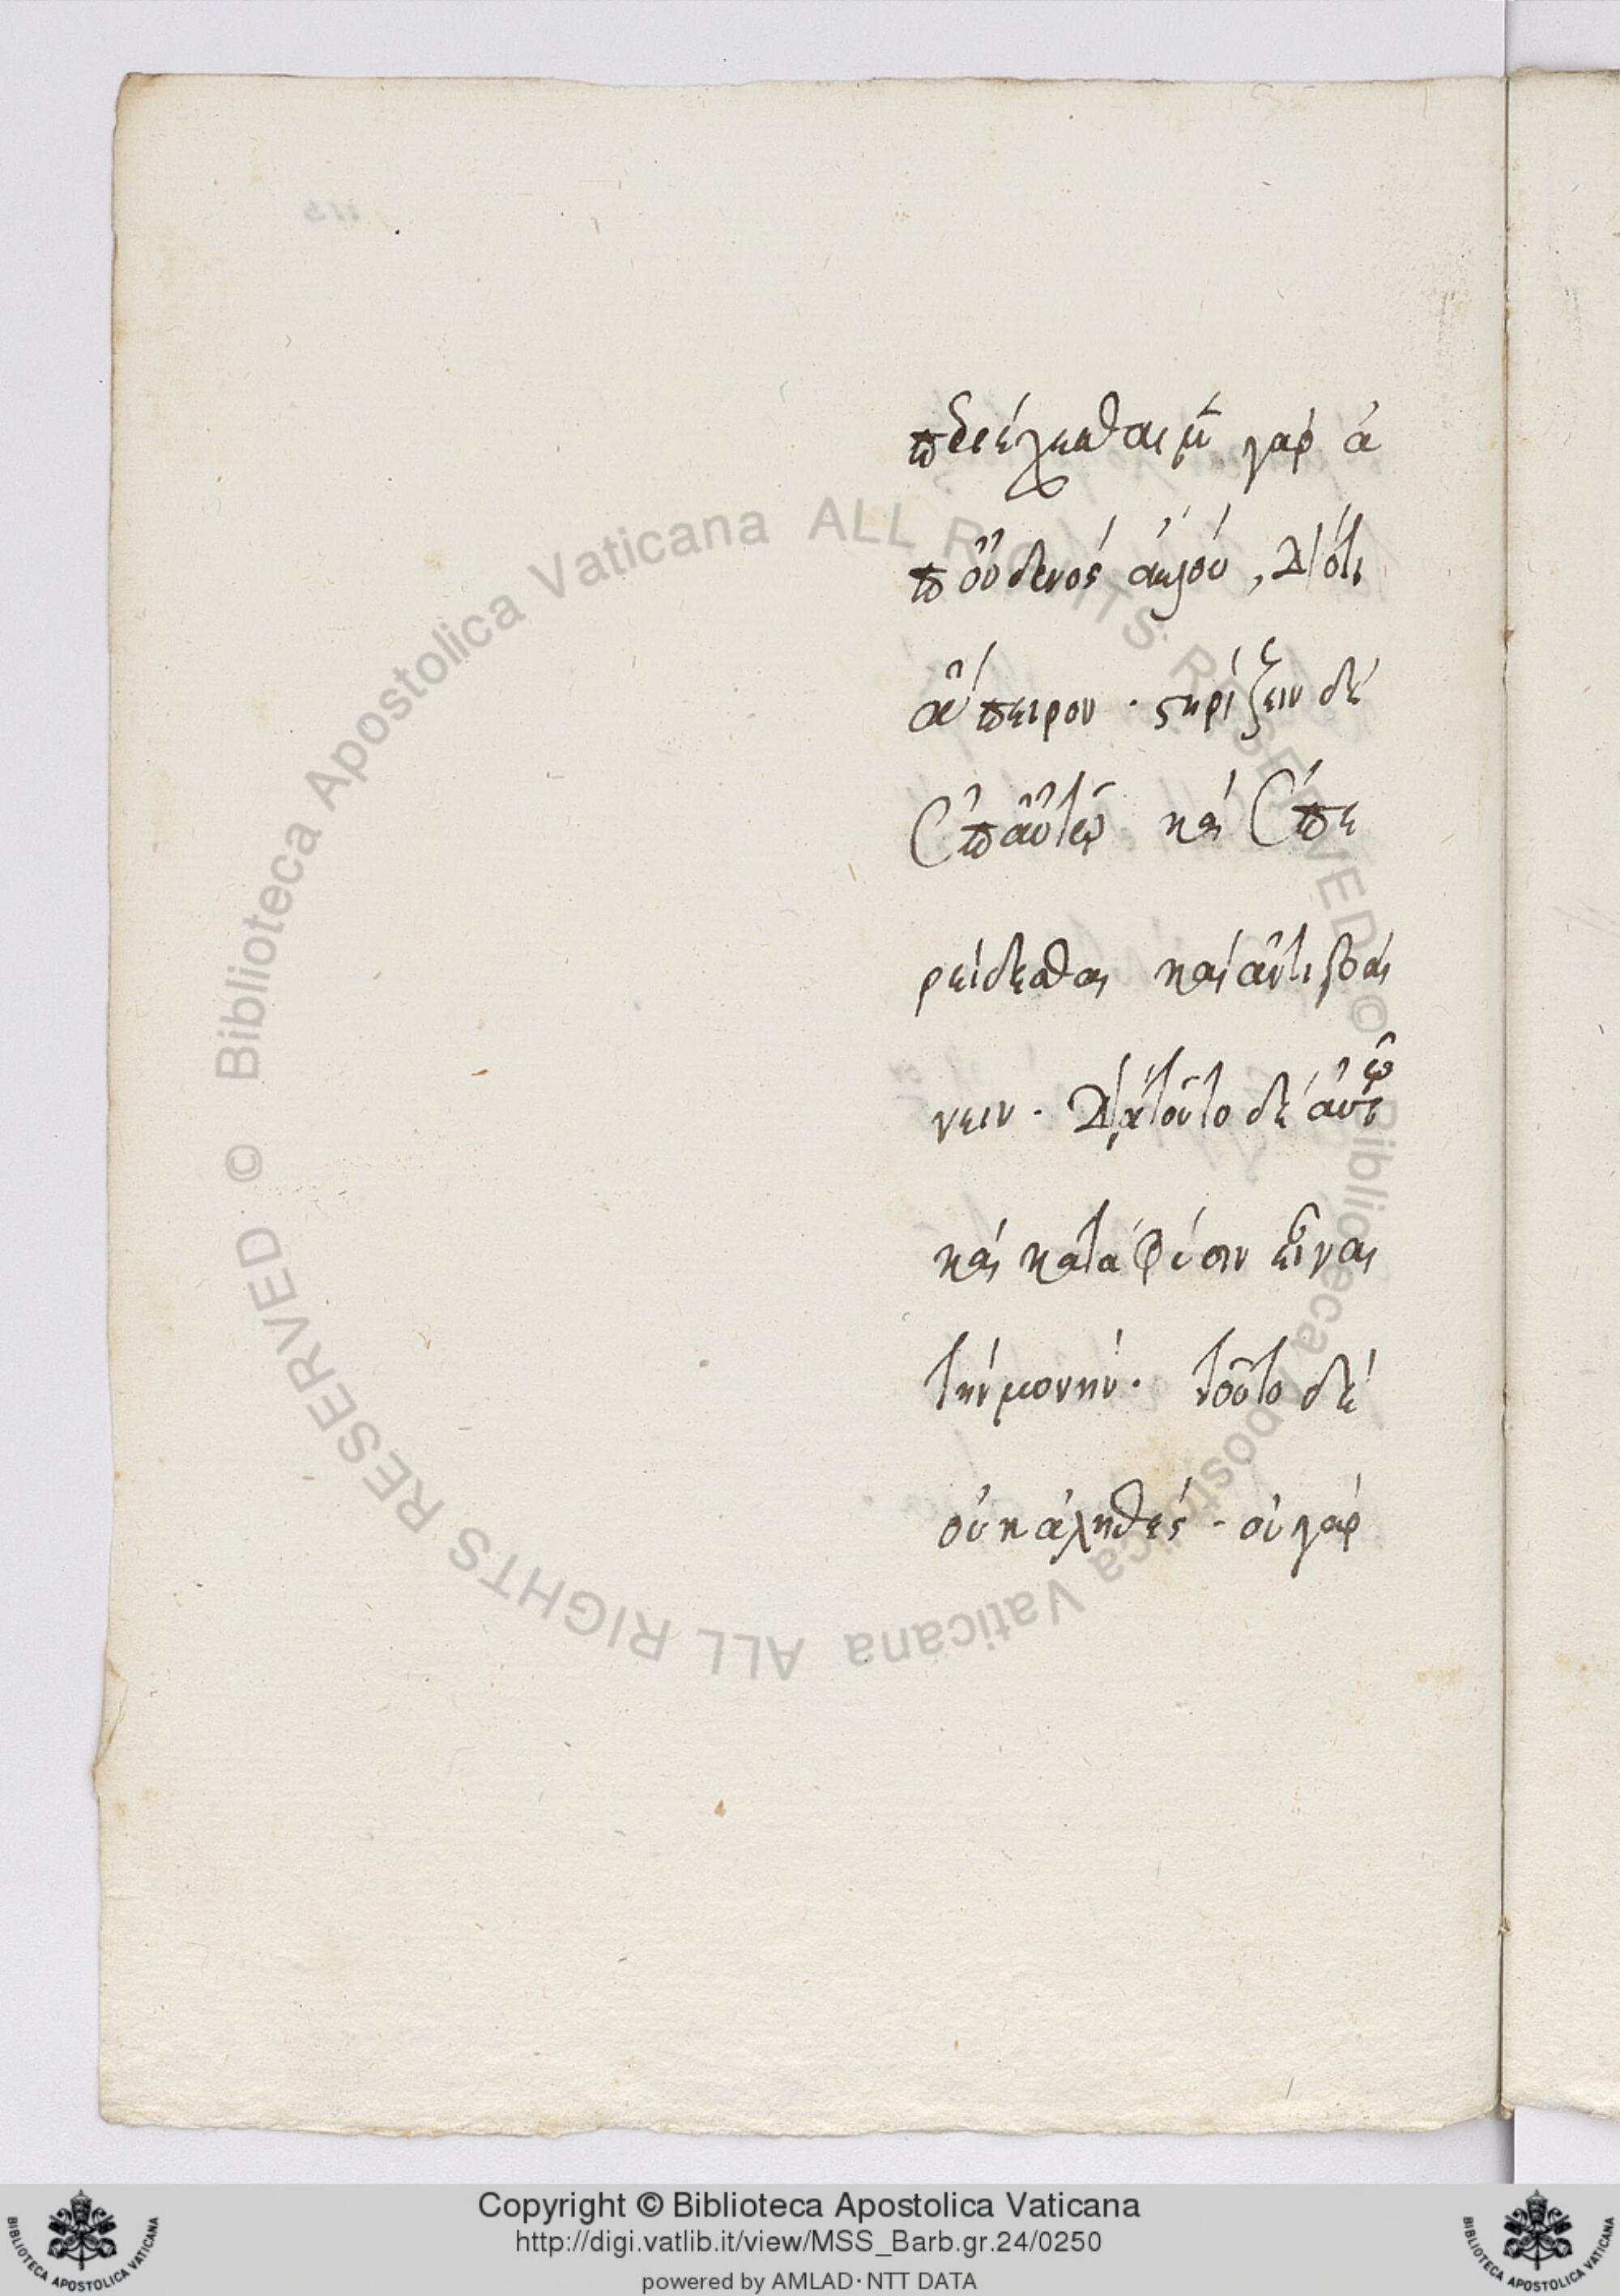 περιέχεσθαι μὲν γὰρ ὑ
π οὐδενὸς αὐτὸ, διότι
ἄπειρον · στηρίζειν δὲ
ἐπ αὐτῷ καὶ ἐπε
ρείδεσθαι καὶ ἀντιβαί
νειν · διὰ τοῦτο δὲ αὐτῷ
καὶ κατὰ φύσιν εἶναι
τὴν μονὴν · τοῦτο δὲ
οὐκ ἀληθὲς · οὐ γὰρ
© Biblioteca Apostolica Vaticana ALL RIGHTS RESERVED © Biblioteca Apostolica Vaticana ALL RIGHTS RESERVED
Copyright © Biblioteca Apostolica Vaticana
http://digi.vatlib.it/view/MSS_Barb.gr.24/0250
powered by AMLAD·NTT DATA
BIBLIOTECA APOSTOLICA VATICANA
BIBLIOTECA APOSTOLICA VATICANA